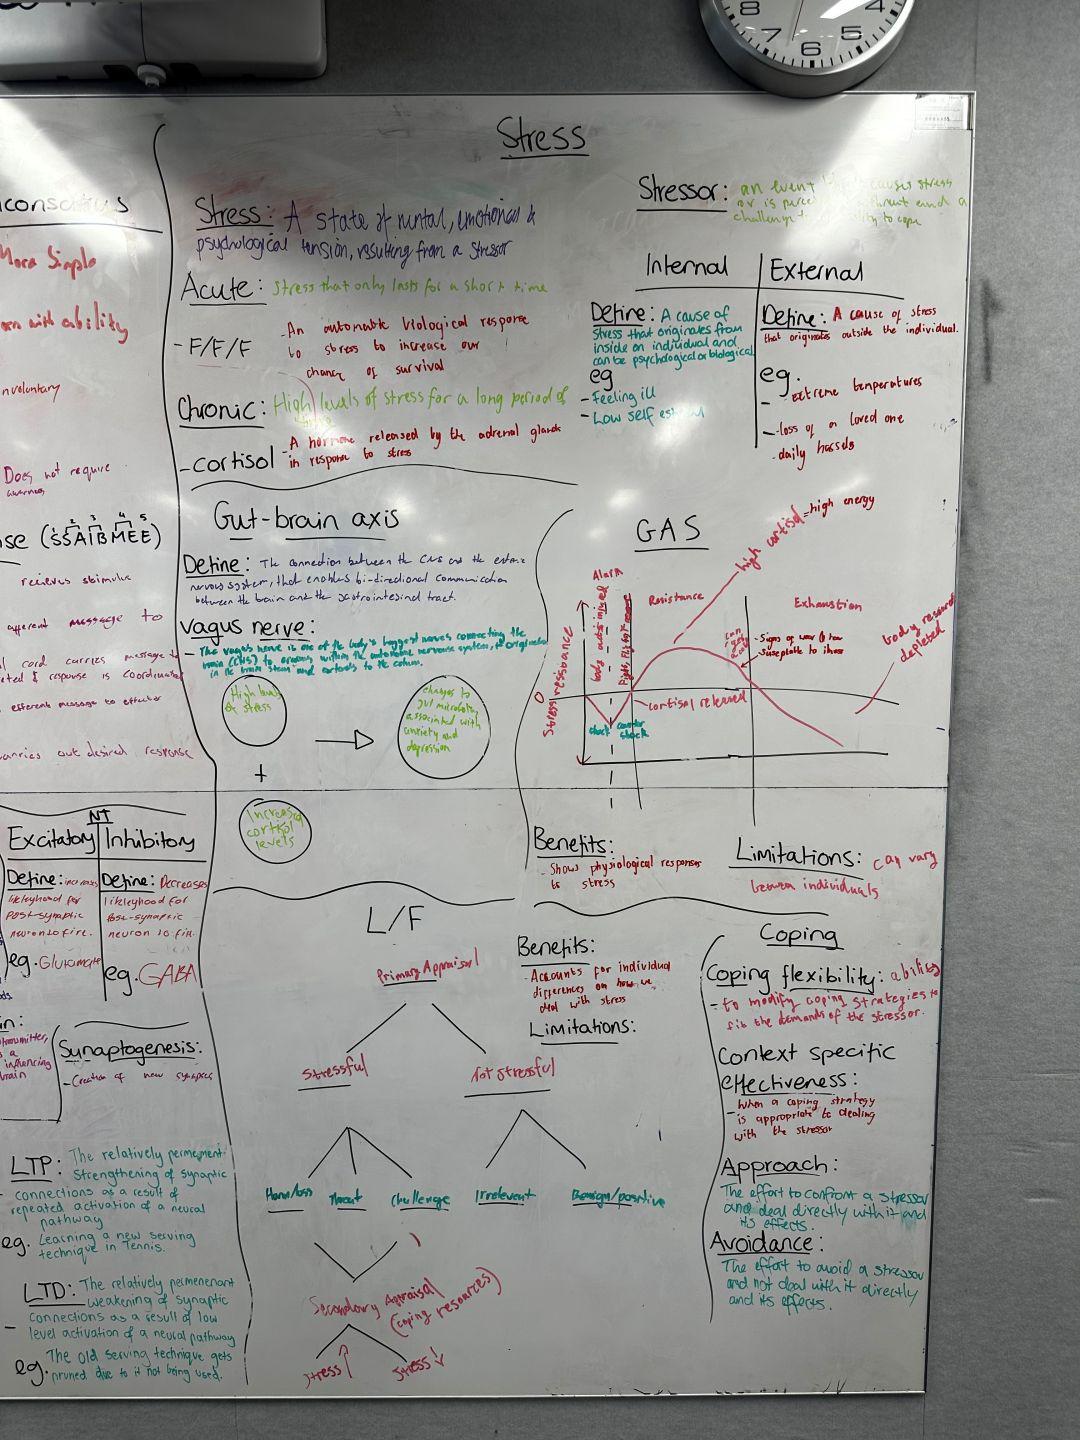 8
7
6
5
4
Stress
Stress: A state of mental, emotional &
psychological tension, resulting from a Stressor
Acute: Stress that only lasts for a short time
- F/F/F
- An automatic biological response
to stress to increase our
chance of survival
Chronic: High levels of stress for a long period of
time
- cortisol
- A hormone released by the adrenal glands
in response to stress
Stressor: an event causes stress
or is and a
challenge to cope
Internal
External
Define: A cause of
stress that originates from
inside an individual and
can be psychological or biological
eg
- Feeling ill
- Low self
Define: A cause of stress
that originates outside the individual.
eg.
- extreme temperatures
- loss of a loved one
- daily hassels
Gut-brain axis
Define: The connection between the CNS and the enteric
nervous system, that enables bi-directional communication
between the brain and the gastrointesinal tract.
Vagus nerve:
- The vagus nerve is one of the body's biggest nerves connecting the
brain (CNS) to organs within the autonomic nervous system, it originates
in the brain stem and extends to the colon.
High levels
of stress
+
Increased
cortisol
levels
changes to
gut microbiota,
associated with
anxiety and
depression
GAS
high cortisol = high energy
Alarm
Resistance
Exhaustion
body resources
depleted
Stress resistance
0
body
shock
counter
shock
- cortisol released
- Signs of wear &
- Suseptable to illness
Benefits:
- Shows physiological responses
to stress
Limitations: can vary
between individuals
L/F
Primary Appraisal
Stressful
Not stressful
Harm/loss
Threat
Challenge
Irrelevent
Benign/positive
Secondary Appraisal
(coping resources)
stress ↑
stress ↓
Benefits:
- Accounts for individual
differences on how we
deal with stress
Limitations:
Coping
Coping flexibility: ability
- to modify coping strategies to
fit the demands of the stressor.
Context specific
effectiveness:
- When a coping strategy
is appropriate to dealing
with the stressor
Approach:
The effort to confront a stressor
and deal directly with it and
its effects.
Avoidance:
The effort to avoid a stressor
and not deal with it directly
and its effects.
More Simple
with ability
nvoluntary
Does not require
awareness
1 2 3 4 5
(SSAIBMEE)
recieves stimulus
afferent message to
cord carries message to
& response is coordinated
efferent message to effector
carries out desired response
NT
Excitatory
Inhibitory
Define: increases
likelyhood for
post-synaptic
neuron to fire.
eg. Glutamate
Define: Decreases
likelyhood for
Post-synaptic
neuron to fire.
eg. GABA
influencing
Synaptogenesis:
- Creation of new synapses
LTP: The relatively permement
Strengthening of synaptic
connections as a result of
repeated activation of a neural
pathway
eg. Learning a new serving
technique in Tennis.
LTD: The relatively permenenant
weakening of synaptic
connections as a result of low
level activation of a neural pathway
eg. The old serving technique gets
pruned due to it not being used.